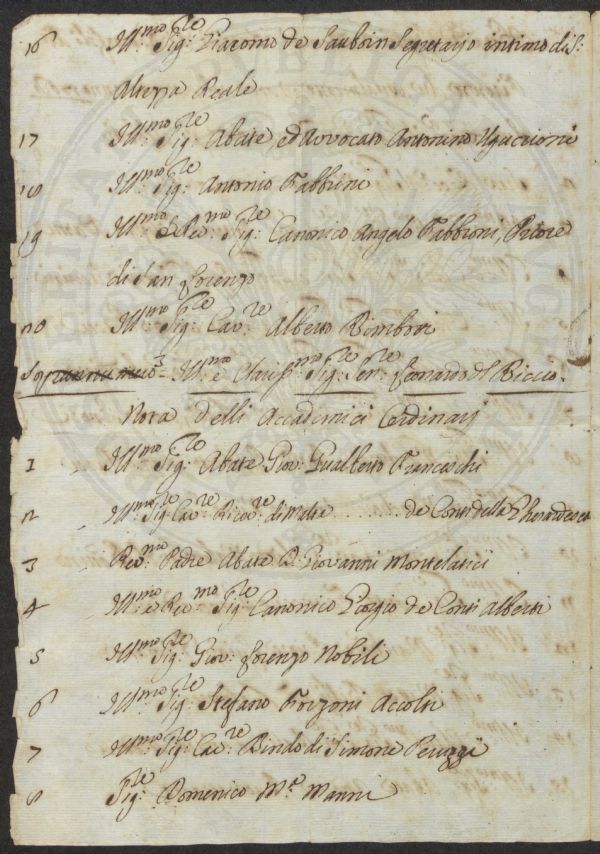 16 Ill.mo Sig.re Giacomo de Sauboin Segretario intimo di S:
Altezza Reale
17 Ill.mo Sig.re Abate ed Avvocato Antonino Uguccioni
18 Ill.mo Sig.re Antonio Fabbrini
19 Ill.mo e Re.mo Sig.re Canonico Angelo Fabbroni, Priore
di San Lorenzo
20 Ill.mo Sig.re Cav.re Alberto Rimbotti
Ill.mo e Clariss.mo Sig.re Sen.re Leonardo del Riccio.
Nota delli Accademici Ordinarj
1 Ill.mo Sig.re Abate Giov: Gualberto Franceschi
2 Ill.mo Sig.re Cav.re Ricev.re di Malta ........ de Conti della Gherardesca
3 Rev.mo Padre Abate D. Giovanni Montelatici
4 Ill.mo e Re.mo Sig.re Canonico Giorgio de Conti Alberti
5 Ill.mo Sig.re Giov: Lorenzo Nobili
6 Ill.mo Sig.re Stefano Forzoni Accolti
7 Ill.mo Sig.re Cav.re Bindo di Simone Peruzzi
8 Sig.re Domenico M.a Manni